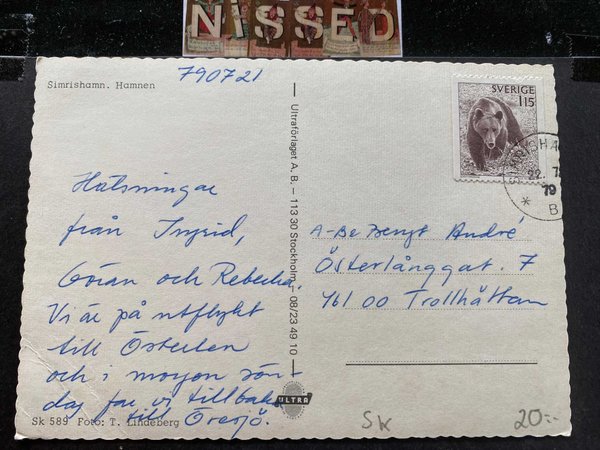 NISSED
Simrishamn. Hamnen
790721
Hälsningar
från Ingrid,
Göran och Rebecka.
Vi är på utflykt
till Österlen
och i morgon sön
dag far vi tillbaka
till Öresjö.
Sk 589 Foto: T. Lindeberg
Ultraförlaget A. B. – 113 30 Stockholm 08/23 49 10
ULTRA
SVERIGE
115
22. 7.
79
* B
A-Be Bengt André
Österlånggat. 7
461 00 Trollhättan
Sk
20:-